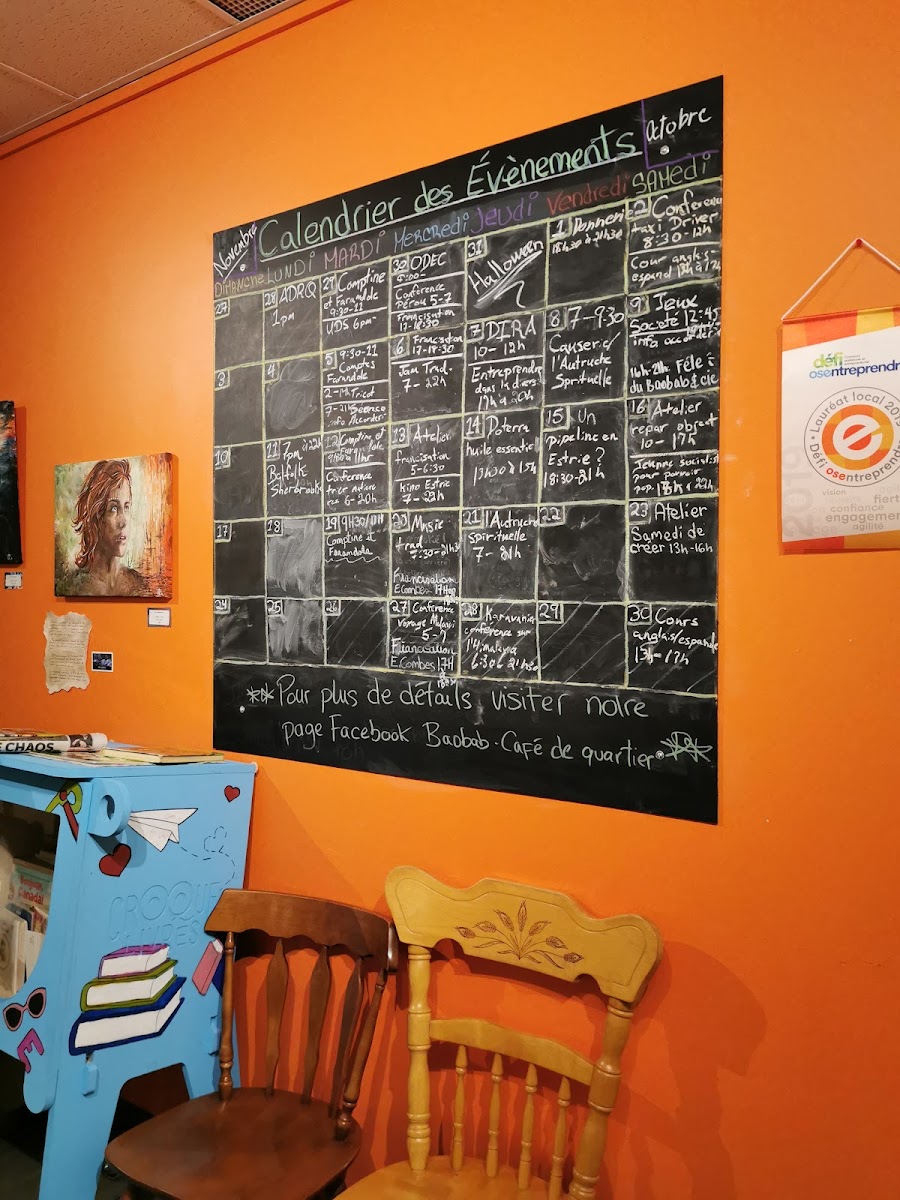 Novembre
Calendrier des Évènements
Octobre
DIMANCHE LUNDI MARDI MERCREDI JEUDI Vendredi SAMEDI
27
28 ADRQ
1pm
29 Comptine
et Farandole
9:30-11
UDS 6pm-
30 ODEC
Conférence
Pérou 5-7
Francisation
17-18:30
31
Halloween
1 Donnerie
18h30 à 21h30
2 Conférence
taxi Driver
8:30-12h
Cour anglis-
espand 13h à 17h
3
4
5 9:30-11
Comptes
Farandole
2- Tricot
7-21
6 Francisation
17-18:30
Jam Trad.
7-22h
7 DIRA
10-12h
Entreprendre
dans la diers
17h à 20h
8 7-9:30
Causerie
l'Autruche
Spirituelle
9 Jeux
Société 12:45
16h-21h Fêle
du Baobab & cie
10
11 7pm à 22h
Balfolk
Sherbrooke
12 Comptine et
Farandole
Conférence
6-20h
13 Atelier
francisation
5-6:30
Kino Estrie
7-22h
14 Doterra
huile essentiel
13h30 à 15h
15 Un
Pipeline en
Estrie?
18:30-21h
16 Atelier
repar object
10-17h
Jeunne socialist
pour pouvoir
pop. 18h à 22h
17
18
19 9H30/11H
Comptine et
Farandole
20 Music
trad
7:30-21h
Francisation
E.Combes 17H
21 l'Autruche
spirituelle
7-21h
22
23 Atelier
Samedi de
créer 13h-16h
24
25
26
27 Conférence
Voyage
5-7
Francisation
E.Combes 17H
28 Karavaniers
conférence sur
l'Himalaya
6:30 à 21h30
29
30 Cours
anglais/espande
13h-17h
Pour plus de détails visiter notre
page Facebook Baobab-Café de quartier
défi
osentreprendre
Lauréat local
e
Défi osentreprendre
vision
fiert
confiance
engagemen
agilité
E CHAOS
CROQUE